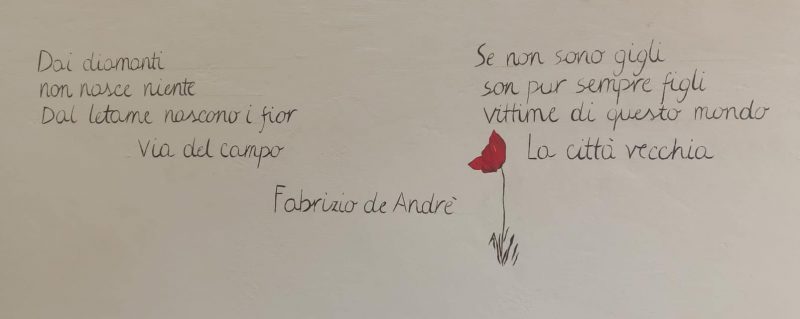 Dai diamanti
non nasce niente
Dal letame nascono i fior
Via del campo
Se non sono gigli
son pur sempre figli
vittime di questo mondo
La città vecchia
Fabrizio de Andrè